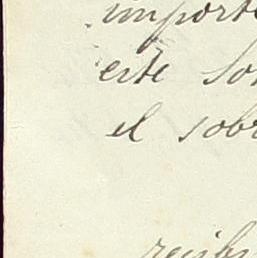 importe
este So
el sobr
recibi